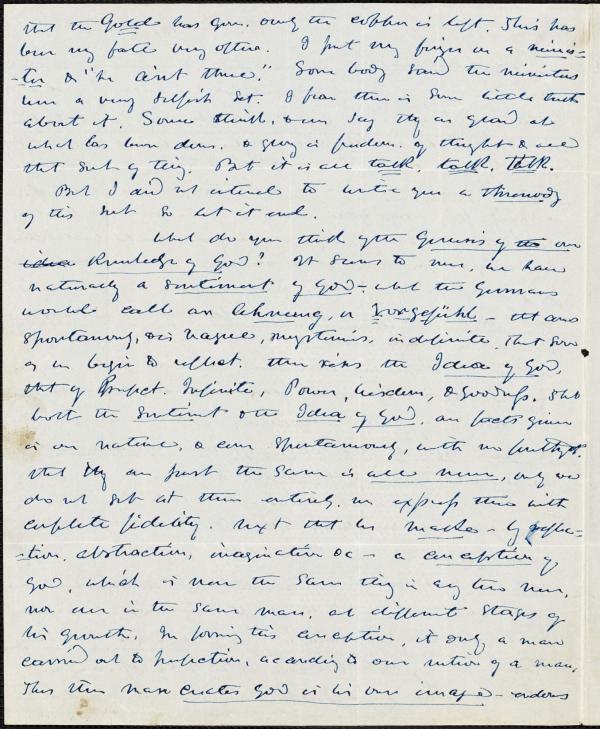 that the Gold has gone. only the copper is left. This has
been my fate very often. I put my finger on a minis-
-ter & "he ain't there." Some body said the ministers
were a very selfish set. I fear there is some little truth
about it. Some think, & even say they are glad at
what has been done, & glory in freedom of thought & all
that sort of thing. But it is all talk, talk, talk.
But I did not intend to write you a threnody
of this sort so let it end.
What do you think of the Genesis of the our
idea Knowledge of God? It seems to me, we have
naturally a sentiment of God — what the Germans
would call an Ahnung, or Vorgefühl — that comes
spontaneously, & is vague, mysterious, indefinite. That soon
as we begin to reflect, there rises the Idea of God,
that of Perfect, Infinite, Power, Wisdom, & Goodness. That
both the Sentiment & the Idea of God, are facts given
in our nature, & come spontaneously, with no forethought.
That they are just the same in all men, only we
do not get at them entirely, nor express them with
complete fidelity. Next that we make — by reflec-
-tion, abstraction, imagination &c — a conception of
God, which is never the same thing in any two men,
nor ever in the same man, at different stages of
his growth. In forming this conception, it is only a man
carried out to perfection, according to our notion of a man.
Thus then man creates God in his own image — endows